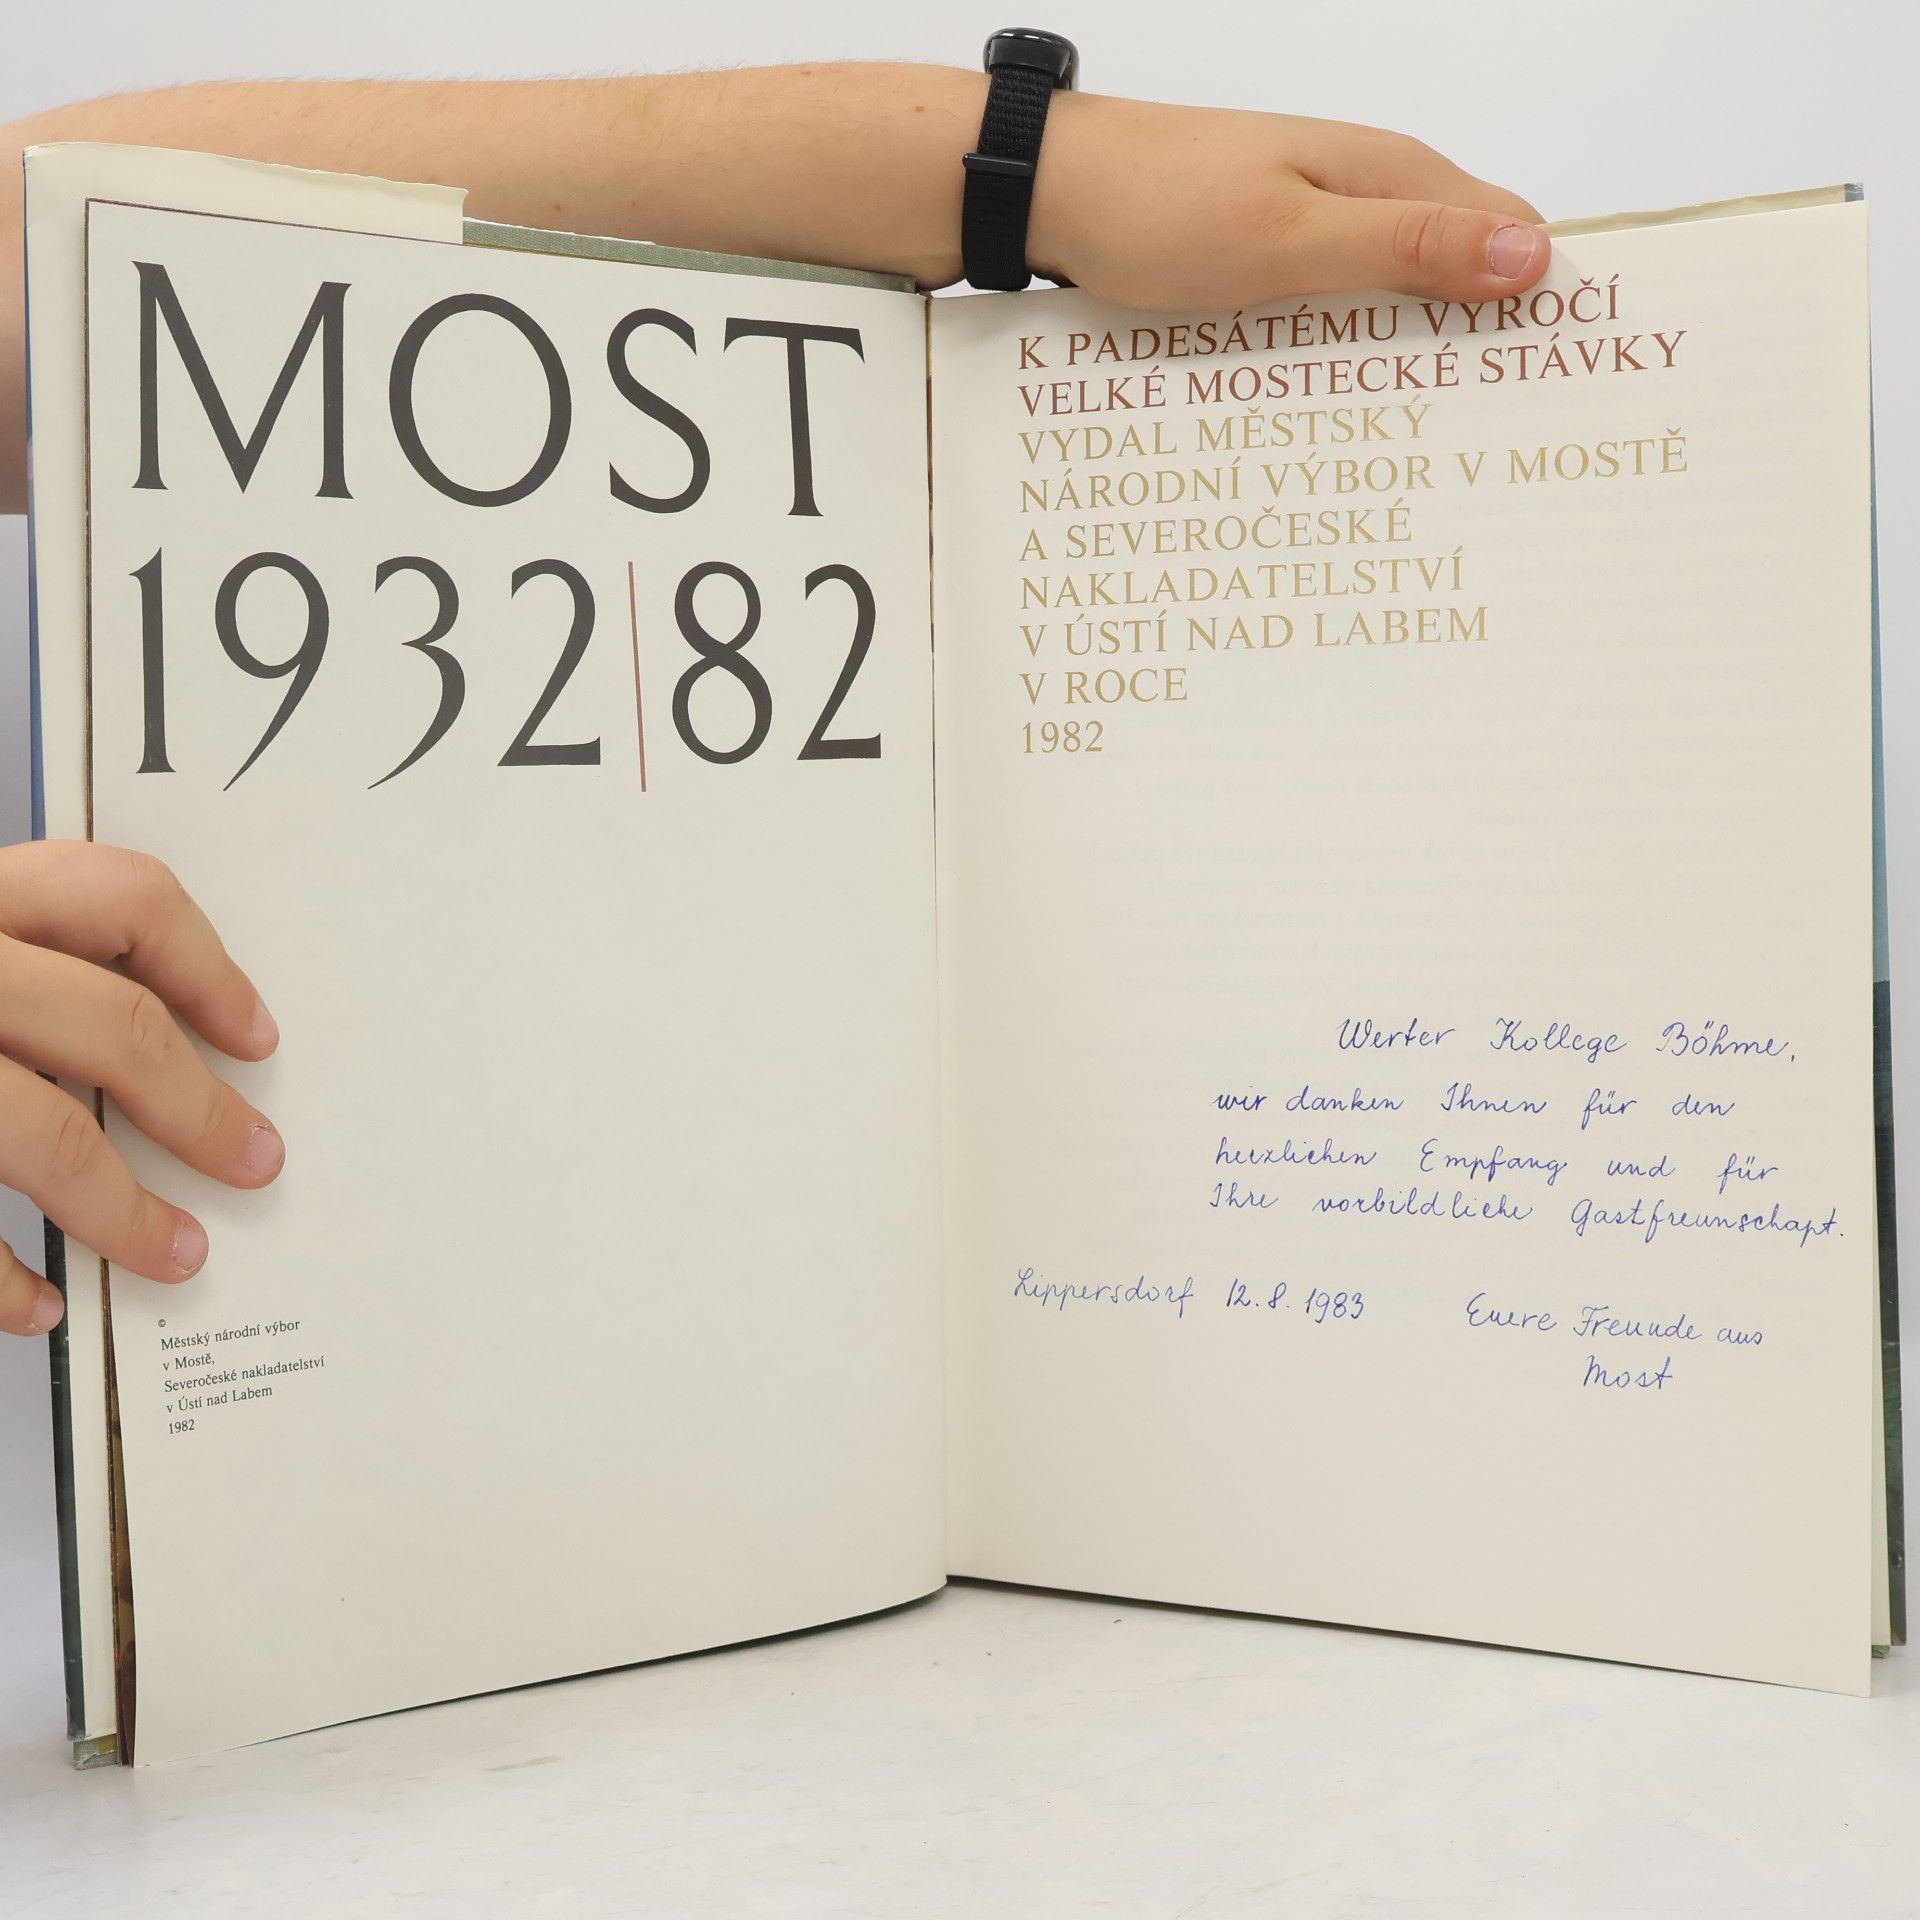 MOST
1932|82
©
Městský národní výbor
v Mostě,
Severočeské nakladatelství
v Ústí nad Labem
1982
K PADESÁTÉMU VÝROČÍ
VELKÉ MOSTECKÉ STÁVKY
VYDAL MĚSTSKÝ
NÁRODNÍ VÝBOR V MOSTĚ
A SEVEROČESKÉ
NAKLADATELSTVÍ
V ÚSTÍ NAD LABEM
V ROCE
1982
Werter Kollege Böhme,
wir danken Ihnen für den
herzlichen Empfang und für
Ihre vorbildliche Gastfreunschapt.
Lippersdorf 12.8.1983
Euere Freunde aus
Most